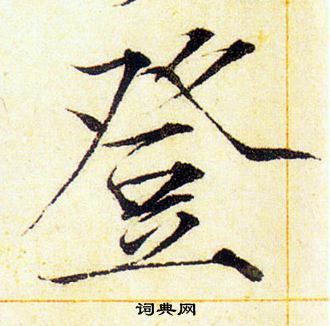 登
词典网